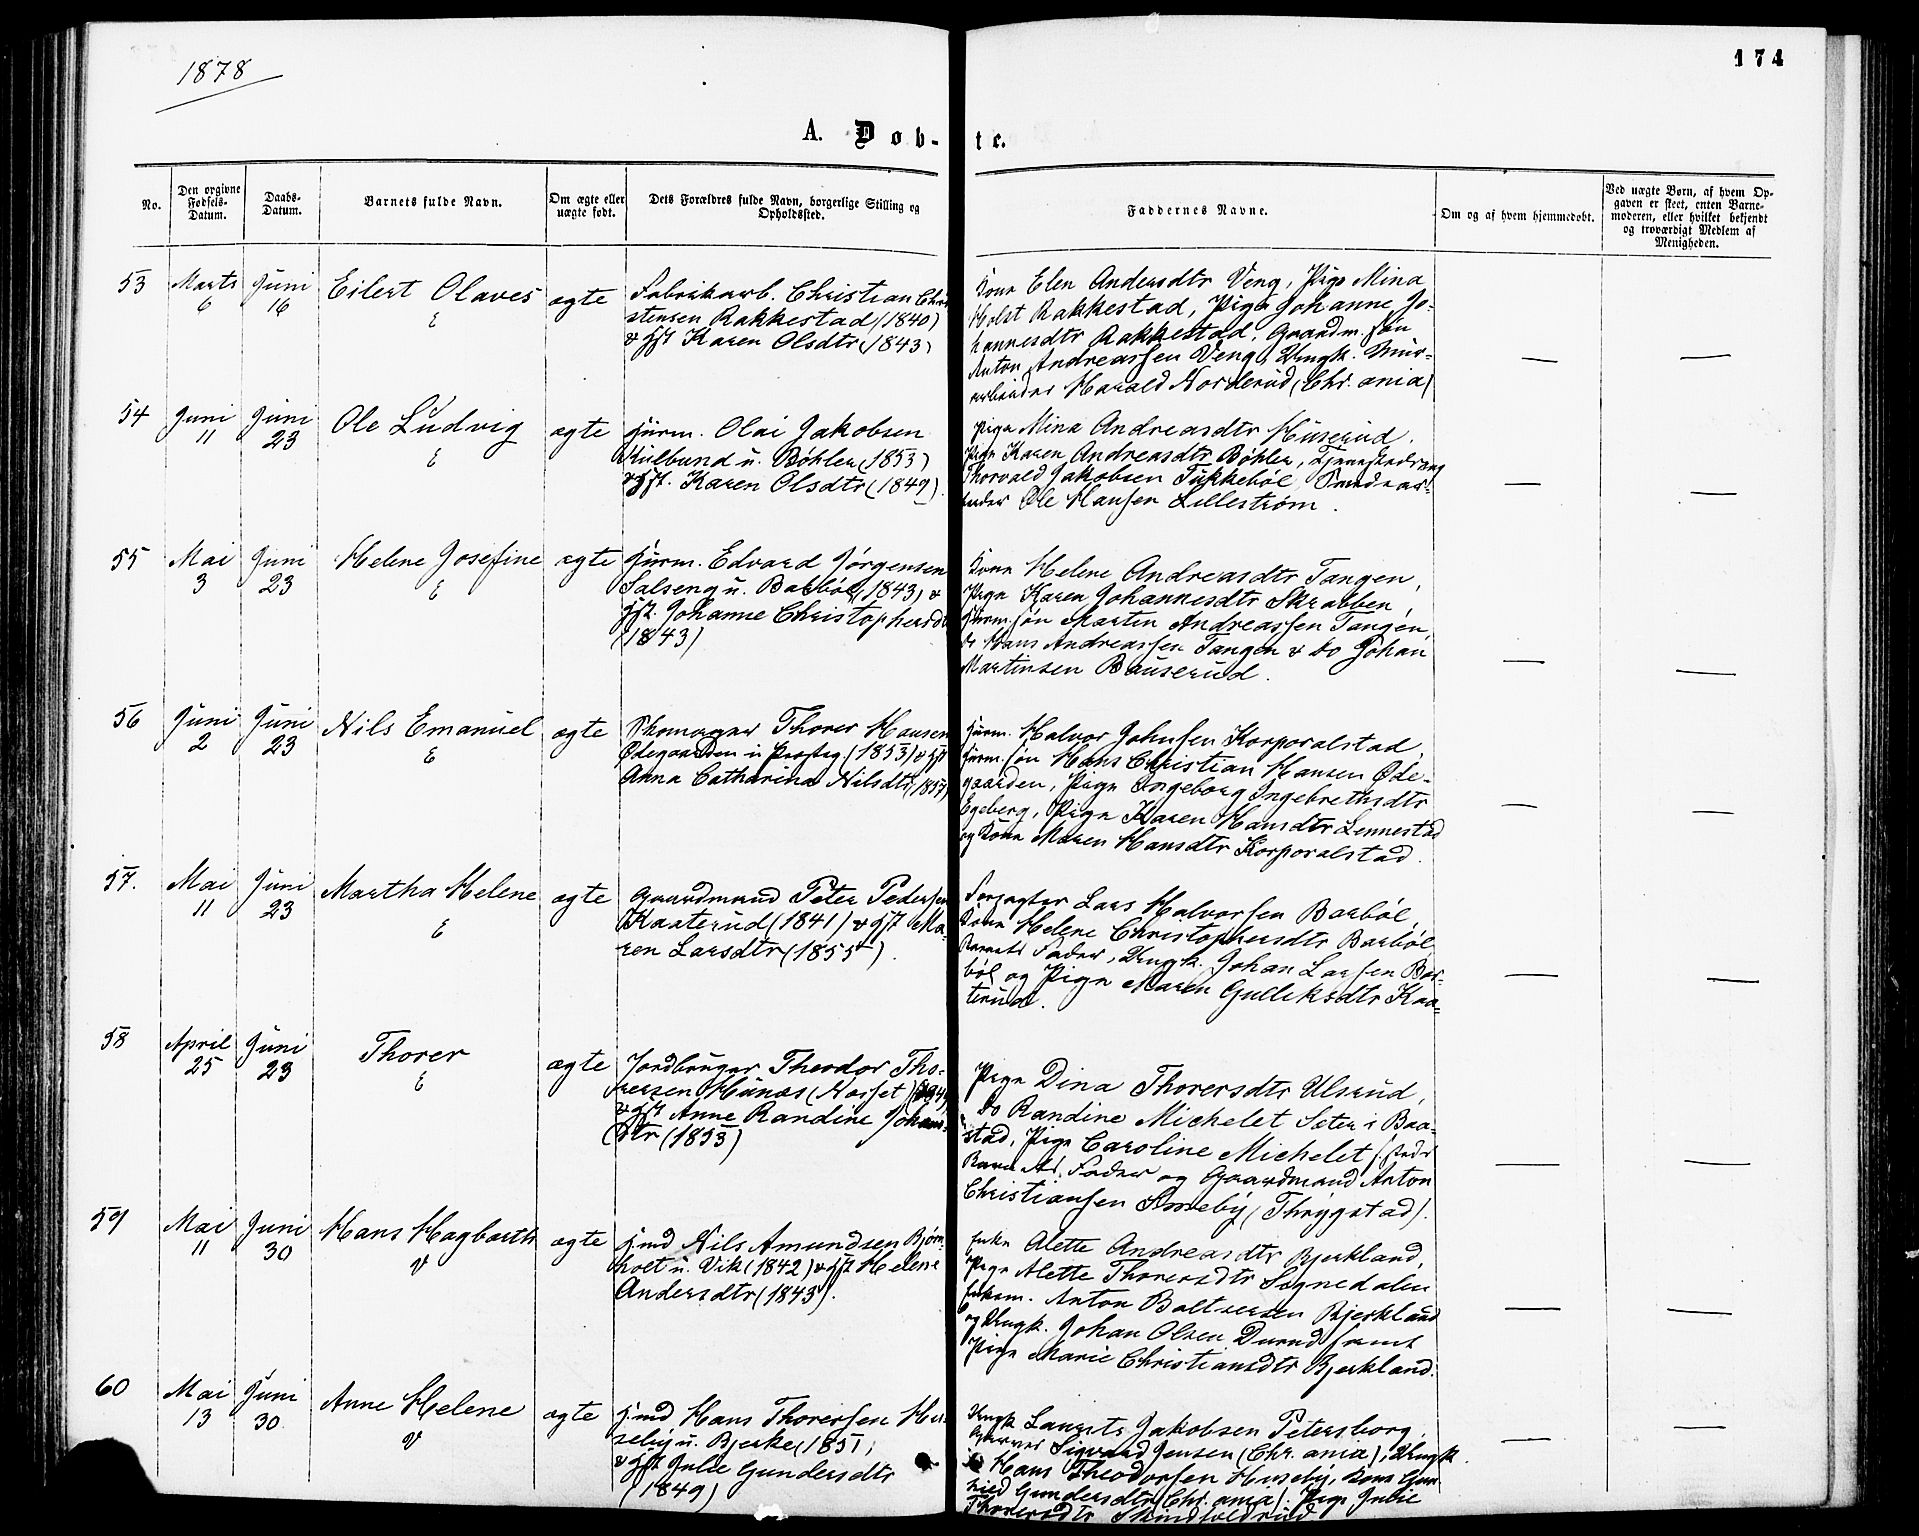 1878
174
A. Døb-
te.
No.
Den opgivne Fødsels-Datum.
Daabs-Datum.
Barnets fulde Navn.
Om ægte eller uægte født.
Dets Forældres fulde Navn, borgerlige Stilling og Opholdssted.
Faddernes Navne.
Om og af hvem hjemmedøbt.
Ved uægte Børn, af hvem Opgaven er skeet, enten Barnemoderen, eller hvilket bekjendt og troværdigt Medlem af Menigheden.
53
Marts 6
Juni 16
Eilert Olaves
E
ægte
Fabrikarb. Christian Chri
stensen Rakkestad (1840)
& Hst Karen Olsdtr (1843)
Kone Elen Andersdtr Veng, Pige Mina
Holst Rakkestad, Pige Johanne Jo-
hannesdtr Rakkestad, Gaardm. søn
Anton Andreassen Veng, Ungk. Mur-
arbeider Harald Norderud (Chr.ania)
54
Juni 11
Juni 23
Ole Ludvig
E
ægte
Husm. Olai Jakobsen
Kulbund u. Bøhler (1853)
& Hst. Karen Olsdtr (1849)
Pige Mina Andreasdtr Huserud,
Pige Karen Andreasdtr Bøhler, Tjenestedreng
Thorvald Jakobsen Tukkebøl, Smedear-
beider Ole Hansen Lillestrøm.
55
Mai 3
Juni 23
Helene Josefine
E
ægte
Husm. Edvard Jørgensen
Salseng u. Barbøl (1843) &
Hst. Johanne Christophersdtr
(1843)
Kone Helene Andreasdtr Tangen,
Pige Karen Johannesdtr Skrabben,
Husm.søn Martin Andreassen Tangen,
do Hans Andreassen Tangen & do Johan
Martinsen Bauserud.
56
Juni 2
Juni 23
Nils Emanuel
E
ægte
Skomager Thorer Hansen
Ødegaarden u. Presteg (1853) & Hst
Anna Catharina Nilsdtr (1857)
Husm. Halvor Johnsen Korporalstad,
Husm.søn Hans Christian Hansen Øde-
gaarden, Pige Ingeborg Ingebrethsdtr
Egeberg, Pige Karen Hansdtr Lennestad
og Kone Maren Hansdtr Korporalstad.
57.
Mai 11
Juni 23
Martha Helene
E
ægte
Gaardmand Peter Pedersen
Kaaterud (1841) & Hst Ma-
ren Larsdtr (1855).
Forpagter Lars Halvorsen Barbøl,
Kone Helene Christophersdtr Barbøl,
Barnets Fader, Ungk. Johan Larsen Bar-
bøl og Pige Maren Gulliksdtr Kaa-
terud.
58
April 25
Juni 23
Thorer
E
ægte
Jordbruger Theodor Tho-
rersen Hunæs (Næsset)
& Hst Anne Randine Johans-
dtr (1853)
Pige Dina Thorersdtr Ulsrud,
do Randine Michelet Seter i Baa-
stad, Pige Caroline Michelet Ssteds
Barnets Fader og Gaardmand Anton
Christiansen Smeby (Thrygstad).
59
Mai 11
Juni 30
Hans Hagbarth
V
ægte
Hmd Nils Amundsen Bjørn
holt u. Vik (1842) & Hst Helene
Andersdtr (1843).
Enke Alette Andreasdtr Bjerkland,
Pige Alette Thorersdtr Sognedalen
Enkem. Anton Baltsersen Bjerkland
og Ungk. Johan Olsen Durud samt
Pige Marie Christiansdtr Bjerkland.
60
Mai 13
Juni 30
Anne Helene
V
ægte
Hmd Hans Thorersen Hu-
seby u. Bjerke (1851)
& Hst Julie Gundersdtr
(1849)
Ungk Laurits Jakobsen Petersborg,
Sigvard Jensen (Chr.ania), Ungk
Hans Theodorsen Huseby, Kone Gun
hild Gundersdtr (Chr.ania). Pige Julie
Thorersdtr